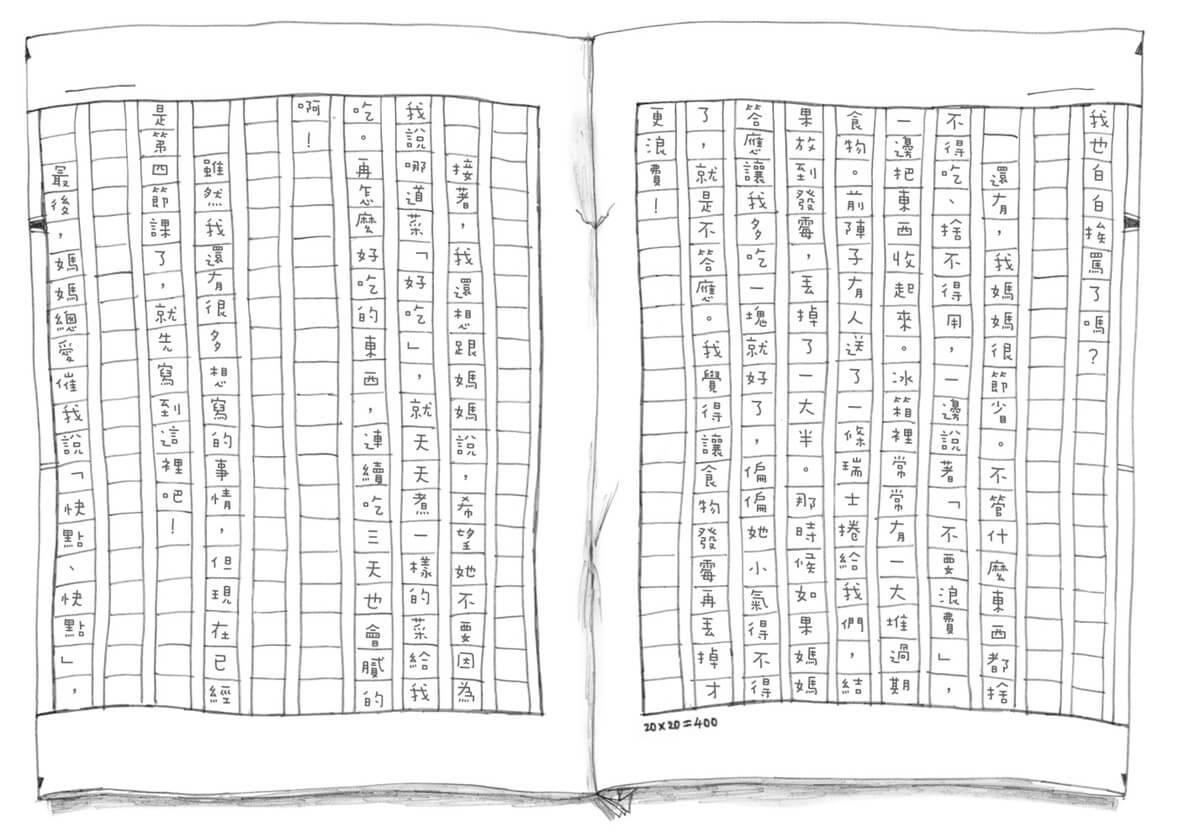 我也白白挨罵了嗎？
還有，我媽媽很節省。不管什麼東西都捨
不得吃、捨不得用，一邊說著「不要浪費」，
一邊把東西收起來。冰箱裡常常有一大堆過期
食物。前陣子有人送了一條瑞士捲給我們，結
果放到發霉，丟掉了一大半。那時候如果媽媽
答應讓我多吃一塊就好了，偏偏她小氣得不得
了，就是不答應。我覺得讓食物發霉再丟掉才
更浪費！
20×20=400
接著，我還想跟媽媽說，希望她不要因為
我說哪道菜「好吃」，就天天煮一樣的菜給我
吃。再怎麼好吃的東西，連續吃三天也會膩的
啊！
雖然我還有很多想寫的事情，但現在已經
是第四節課了，就先寫到這裡吧！
最後，媽媽總愛催我說「快點、快點」，